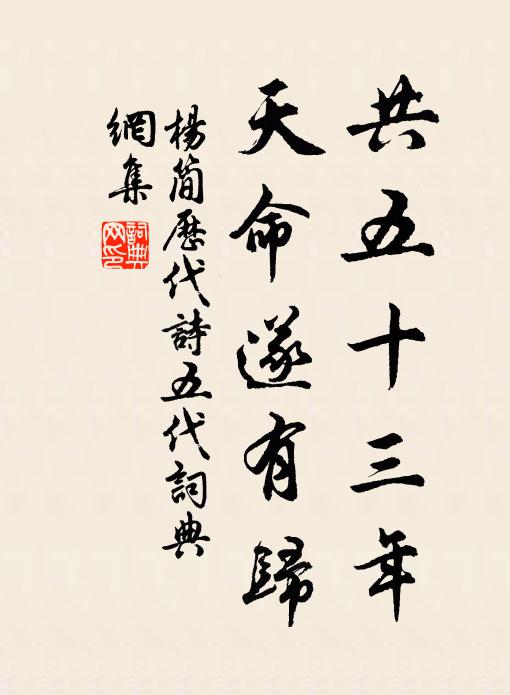 共五十三年
天命遂有歸
楊簡歷代詩五代詞典
網集
詞典
网印